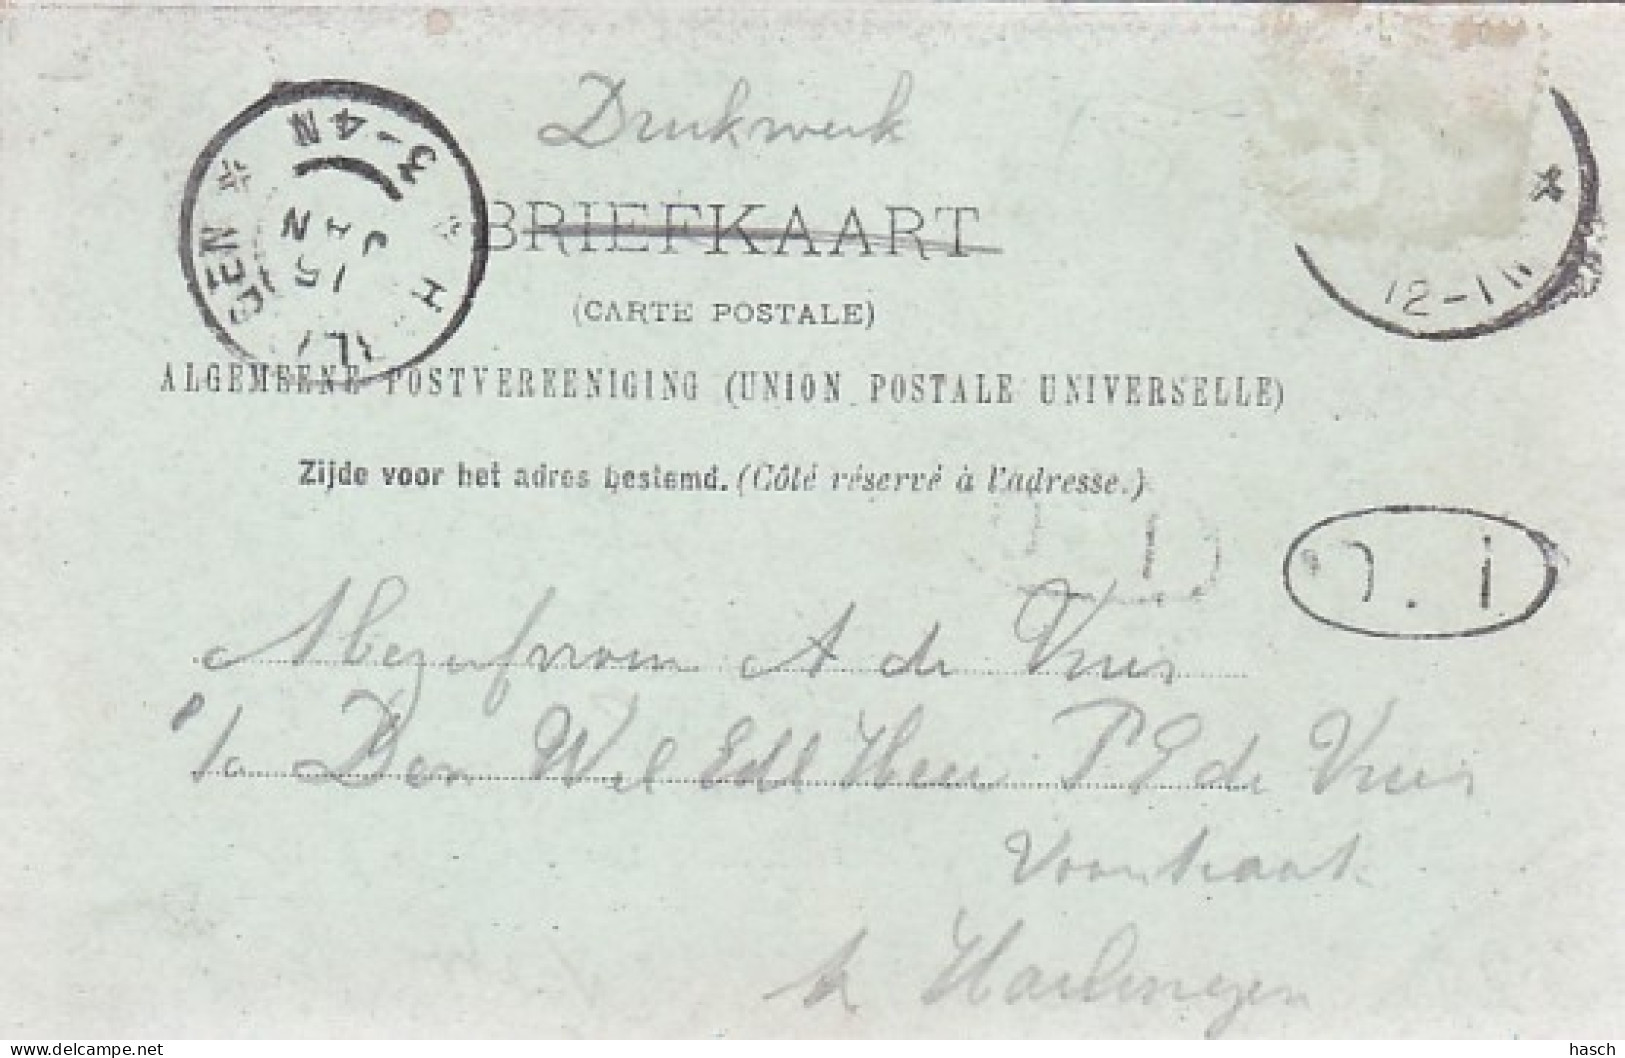 Drukwerk
BRIEFKAART
(CARTE POSTALE)
ALGEMEENE POSTVEREENIGING (UNION POSTALE UNIVERSELLE)
Zijde voor het adres bestemd. (Côté réservé à l'adresse.)
3-4N
15
JAN
12-1N
A de Vries
Den Wel Edl Heer P E de Vries
Voorstraat
te Harlingen
delcampe.net
hasch